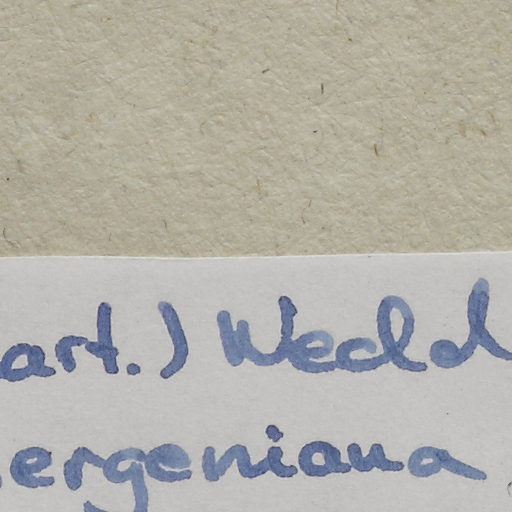 art.) Wedd
ergeniana